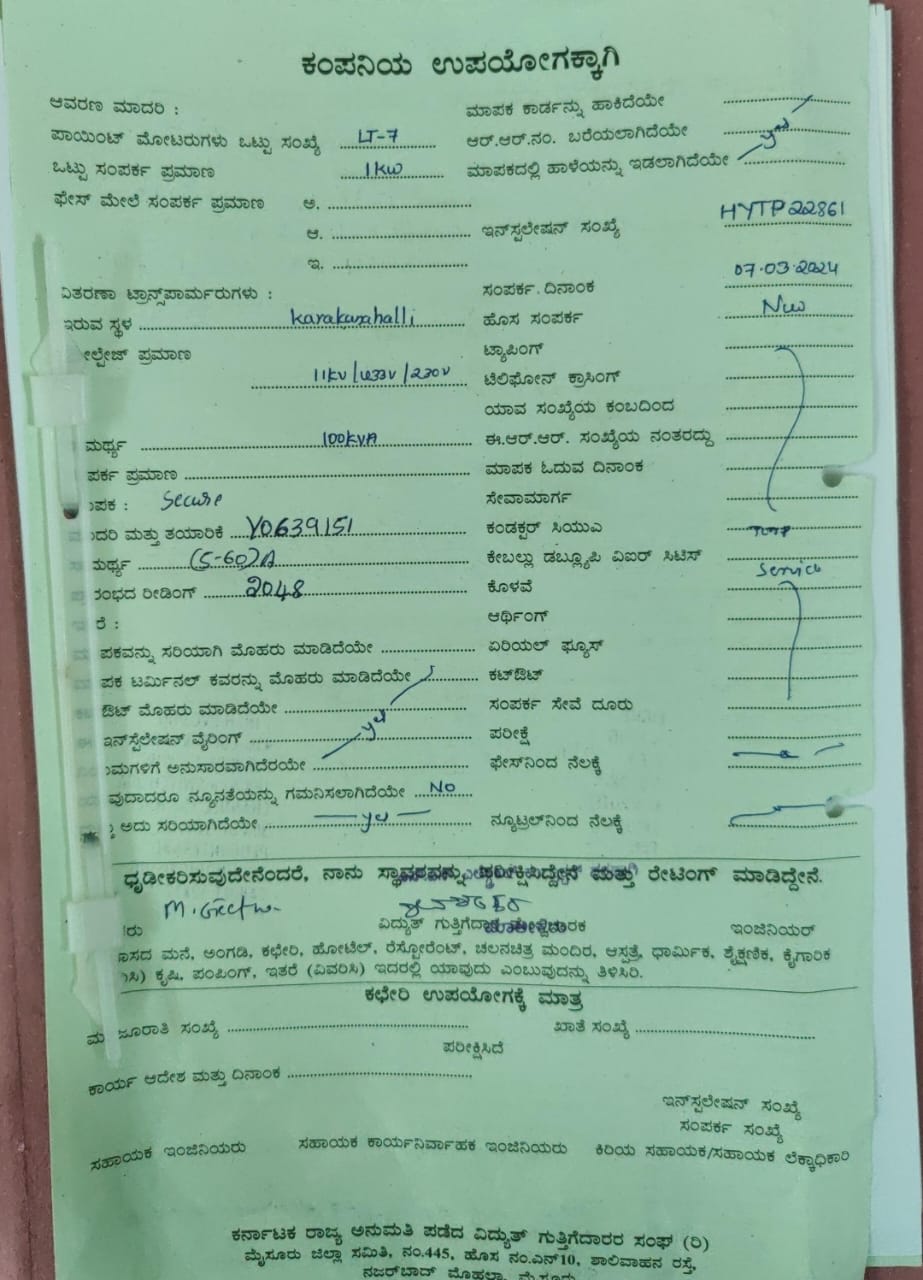 ಕಂಪನಿಯ ಉಪಯೋಗಕ್ಕಾಗಿ
ಆವರಣ ಮಾದರಿ :
ಮಾಪಕ ಕಾರ್ಡನ್ನು ಹಾಕಿದೆಯೇ
ಪಾಯಿಂಟ್ ಮೋಟರುಗಳು ಒಟ್ಟು ಸಂಖ್ಯೆ LT-7
ಆರ್.ಆರ್.ನಂ. ಬರೆಯಲಾಗಿದೆಯೇ yes
ಒಟ್ಟು ಸಂಪರ್ಕ ಪ್ರಮಾಣ 1kw
ಮಾಪಕದಲ್ಲಿ ಹಾಳೆಯನ್ನು ಇಡಲಾಗಿದೆಯೇ
ಫೇಸ್ ಮೇಲೆ ಸಂಪರ್ಕ ಪ್ರಮಾಣ ಅ.
ಆ. ಇನ್‌ಸ್ಪಲೇಷನ್ ಸಂಖ್ಯೆ HYTP22861
ಇ.
ವಿತರಣಾ ಟ್ರಾನ್ಸ್‌ಪಾರ್ಮರುಗಳು : ಸಂಪರ್ಕ ದಿನಾಂಕ 07.03.2024
ಇರುವ ಸ್ಥಳ Karakanahalli ಹೊಸ ಸಂಪರ್ಕ New
ೋಲ್ಟೇಜ್ ಪ್ರಮಾಣ ಟ್ಯಾಪಿಂಗ್
11kv/433v/230v ಟೆಲಿಫೋನ್ ಕ್ರಾಸಿಂಗ್
ಯಾವ ಸಂಖ್ಯೆಯ ಕಂಬದಿಂದ
ಮರ್ಥ್ಯ 100kVA ಈ.ಆರ್.ಆರ್. ಸಂಖ್ಯೆಯ ನಂತರದ್ದು
ಪರ್ಕ ಪ್ರಮಾಣ ಮಾಪಕ ಓದುವ ದಿನಾಂಕ
ಾಪಕ : Secure ಸೇವಾಮಾರ್ಗ
ಾದರಿ ಮತ್ತು ತಯಾರಿಕೆ Y0639151 ಕಂಡಕ್ಟರ್ ಸಿಯುಎ
ಮರ್ಥ್ಯ (5-60)A ಕೇಬಲ್ಲು ಡಬ್ಲ್ಯೂಪಿ ವಿಐರ್ ಸಿಟಿಸ್
ರಂಭದ ರೀಡಿಂಗ್ 2048 ಕೊಳವೆ Service
ರೆ : ಆರ್ಥಿಂಗ್
ಪಕವನ್ನು ಸರಿಯಾಗಿ ಮೊಹರು ಮಾಡಿದೆಯೇ ಏರಿಯಲ್ ಫ್ಯೂಸ್
ಪಕ ಟರ್ಮಿನಲ್ ಕವರನ್ನು ಮೊಹರು ಮಾಡಿದೆಯೇ ಕಟ್‌ಔಟ್
ಔಟ್ ಮೊಹರು ಮಾಡಿದೆಯೇ ಸಂಪರ್ಕ ಸೇವೆ ದೂರು
ಇನ್‌ಸ್ಟಲೇಷನ್ ವೈರಿಂಗ್ yes ಪರೀಕ್ಷೆ
ಮಗಳಿಗೆ ಅನುಸಾರವಾಗಿದೆರಯೇ ಫೇಸ್‌ನಿಂದ ನೆಲಕ್ಕೆ
ವುದಾದರೂ ನ್ಯೂನತೆಯನ್ನು ಗಮನಿಸಲಾಗಿದೆಯೇ No
ಅದು ಸರಿಯಾಗಿದೆಯೇ yes ನ್ಯೂಟ್ರಲ್‌ನಿಂದ ನೆಲಕ್ಕೆ
ಧೃಡೀಕರಿಸುವುದೇನೆಂದರೆ, ನಾನು ಸ್ಥಾವರವನ್ನು ಪರೀಕ್ಷಿಸಿದ್ದೇನೆ ಮತ್ತು ರೇಟಿಂಗ್ ಮಾಡಿದ್ದೇನೆ.
ರು ವಿದ್ಯುತ್ ಗುತ್ತಿಗೆದಾರ ಮೇಲ್ವಿಚಾರಕ ಇಂಜಿನಿಯರ್
ಾಸದ ಮನೆ, ಅಂಗಡಿ, ಕಛೇರಿ, ಹೋಟೆಲ್, ರೆಸ್ಟೋರೆಂಟ್, ಚಲನಚಿತ್ರ ಮಂದಿರ, ಆಸ್ಪತ್ರೆ, ಧಾರ್ಮಿಕ, ಶೈಕ್ಷಣಿಕ, ಕೈಗಾರಿಕ
ಸಿ) ಕೃಷಿ, ಪಂಪಿಂಗ್, ಇತರೆ (ವಿವರಿಸಿ) ಇದರಲ್ಲಿ ಯಾವುದು ಎಂಬುವುದನ್ನು ತಿಳಿಸಿರಿ.
ಕಛೇರಿ ಉಪಯೋಗಕ್ಕೆ ಮಾತ್ರ
ಮ ಜೂರಾತಿ ಸಂಖ್ಯೆ ಖಾತೆ ಸಂಖ್ಯೆ
ಪರೀಕ್ಷಿಸಿದೆ
ಕಾರ್ಯ ಆದೇಶ ಮತ್ತು ದಿನಾಂಕ
ಇನ್‌ಸ್ಪಲೇಷನ್ ಸಂಖ್ಯೆ
ಸಂಪರ್ಕ ಸಂಖ್ಯೆ
ಸಹಾಯಕ ಇಂಜಿನಿಯರು ಸಹಾಯಕ ಕಾರ್ಯನಿರ್ವಾಹಕ ಇಂಜಿನಿಯರು ಕಿರಿಯ ಸಹಾಯಕ/ಸಹಾಯಕ ಲೆಕ್ಕಾಧಿಕಾರಿ
ಕರ್ನಾಟಕ ರಾಜ್ಯ ಅನುಮತಿ ಪಡೆದ ವಿದ್ಯುತ್ ಗುತ್ತಿಗೆದಾರರ ಸಂಘ (ರಿ)
ಮೈಸೂರು ಜಿಲ್ಲಾ ಸಮಿತಿ, ನಂ.445, ಹೊಸ ನಂ.ಎನ್10, ಶಾಲಿವಾಹನ ರಸ್ತೆ,
ನಜರ್‌ಬಾದ್ ಮೊಹಲ್ಲಾ, ಮೈಸೂರು